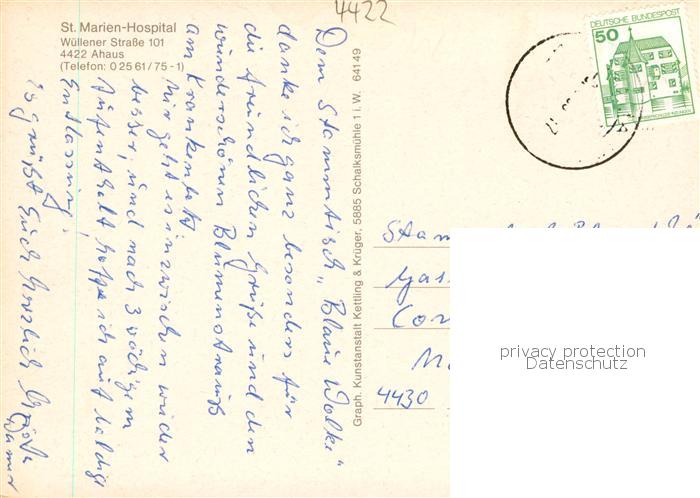 4422
St. Marien-Hospital
Wüllener Straße 101
4422 Ahaus
(Telefon: 0 25 61 / 75 - 1)
Dem Stammtisch „Blaue Wolke"
danke ich ganz besonders für
die freundlichen Grüße und den
wunderschönen Blumenstrauß
am Krankenbett
Mir geht es inzwischen wieder
besser, und nach 3 wöchigem
Aufenthalt hoffe ich auf baldige
Entlassung.
Es grüßt Euch herzlich
Graph. Kunstanstalt Kettling & Krüger, 5885 Schalksmühle 1 i. W. 64149
DEUTSCHE BUNDESPOST
50
4430
privacy protection
Datenschutz